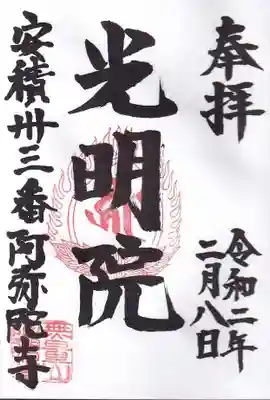 奉拝
令和二年
二月八日
光明院
安積卅三番阿弥陀寺